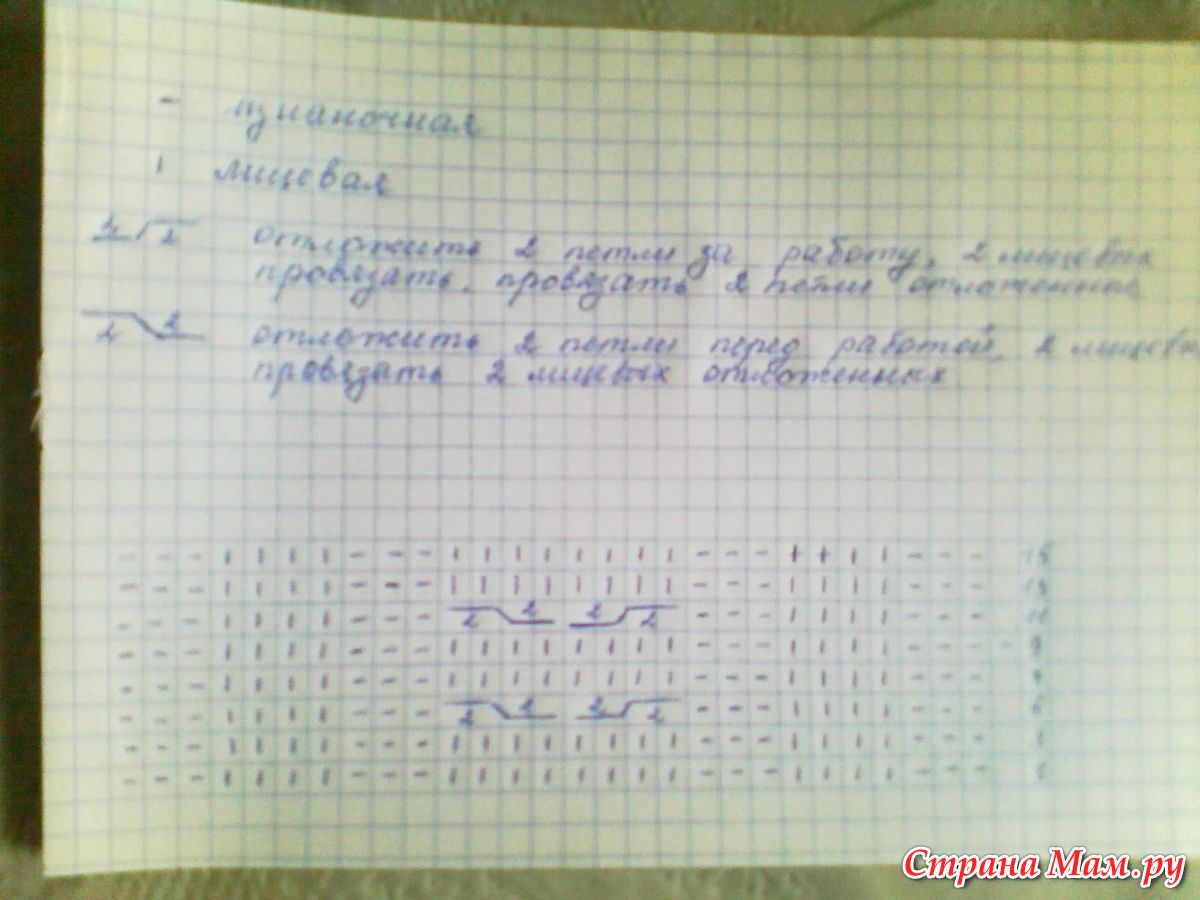 - изнаночная
ı лицевая
2 2 отложить 2 петли за работу, 2 лицевых
провязать, провязать 2 петли отложенные
2 2 отложить 2 петли перед работой, 2 лицевы
провязать 2 лицевых отложенных
- - - ı ı ı ı - - - ı ı ı ı ı ı ı ı - - - ı ı ı ı - - - 15
- - - ı ı ı ı - - - ı ı ı ı ı ı ı ı - - - ı ı ı ı - - - 13
- - - ı ı ı ı - - - 2 2 2 2 - - - ı ı ı ı - - - 11
- - - ı ı ı ı - - - ı ı ı ı ı ı ı ı - - - ı ı ı ı - - - 9
- - - ı ı ı ı - - - ı ı ı ı ı ı ı ı - - - ı ı ı ı - - -
- - - ı ı ı ı - - - 2 2 2 2 - - - ı ı ı ı - - -
- - - ı ı ı ı - - - ı ı ı ı ı ı ı ı - - - ı ı ı ı - - -
- - - ı ı ı ı - - - ı ı ı ı ı ı ı ı - - - ı ı ı ı - - -
Страна Мам.ру